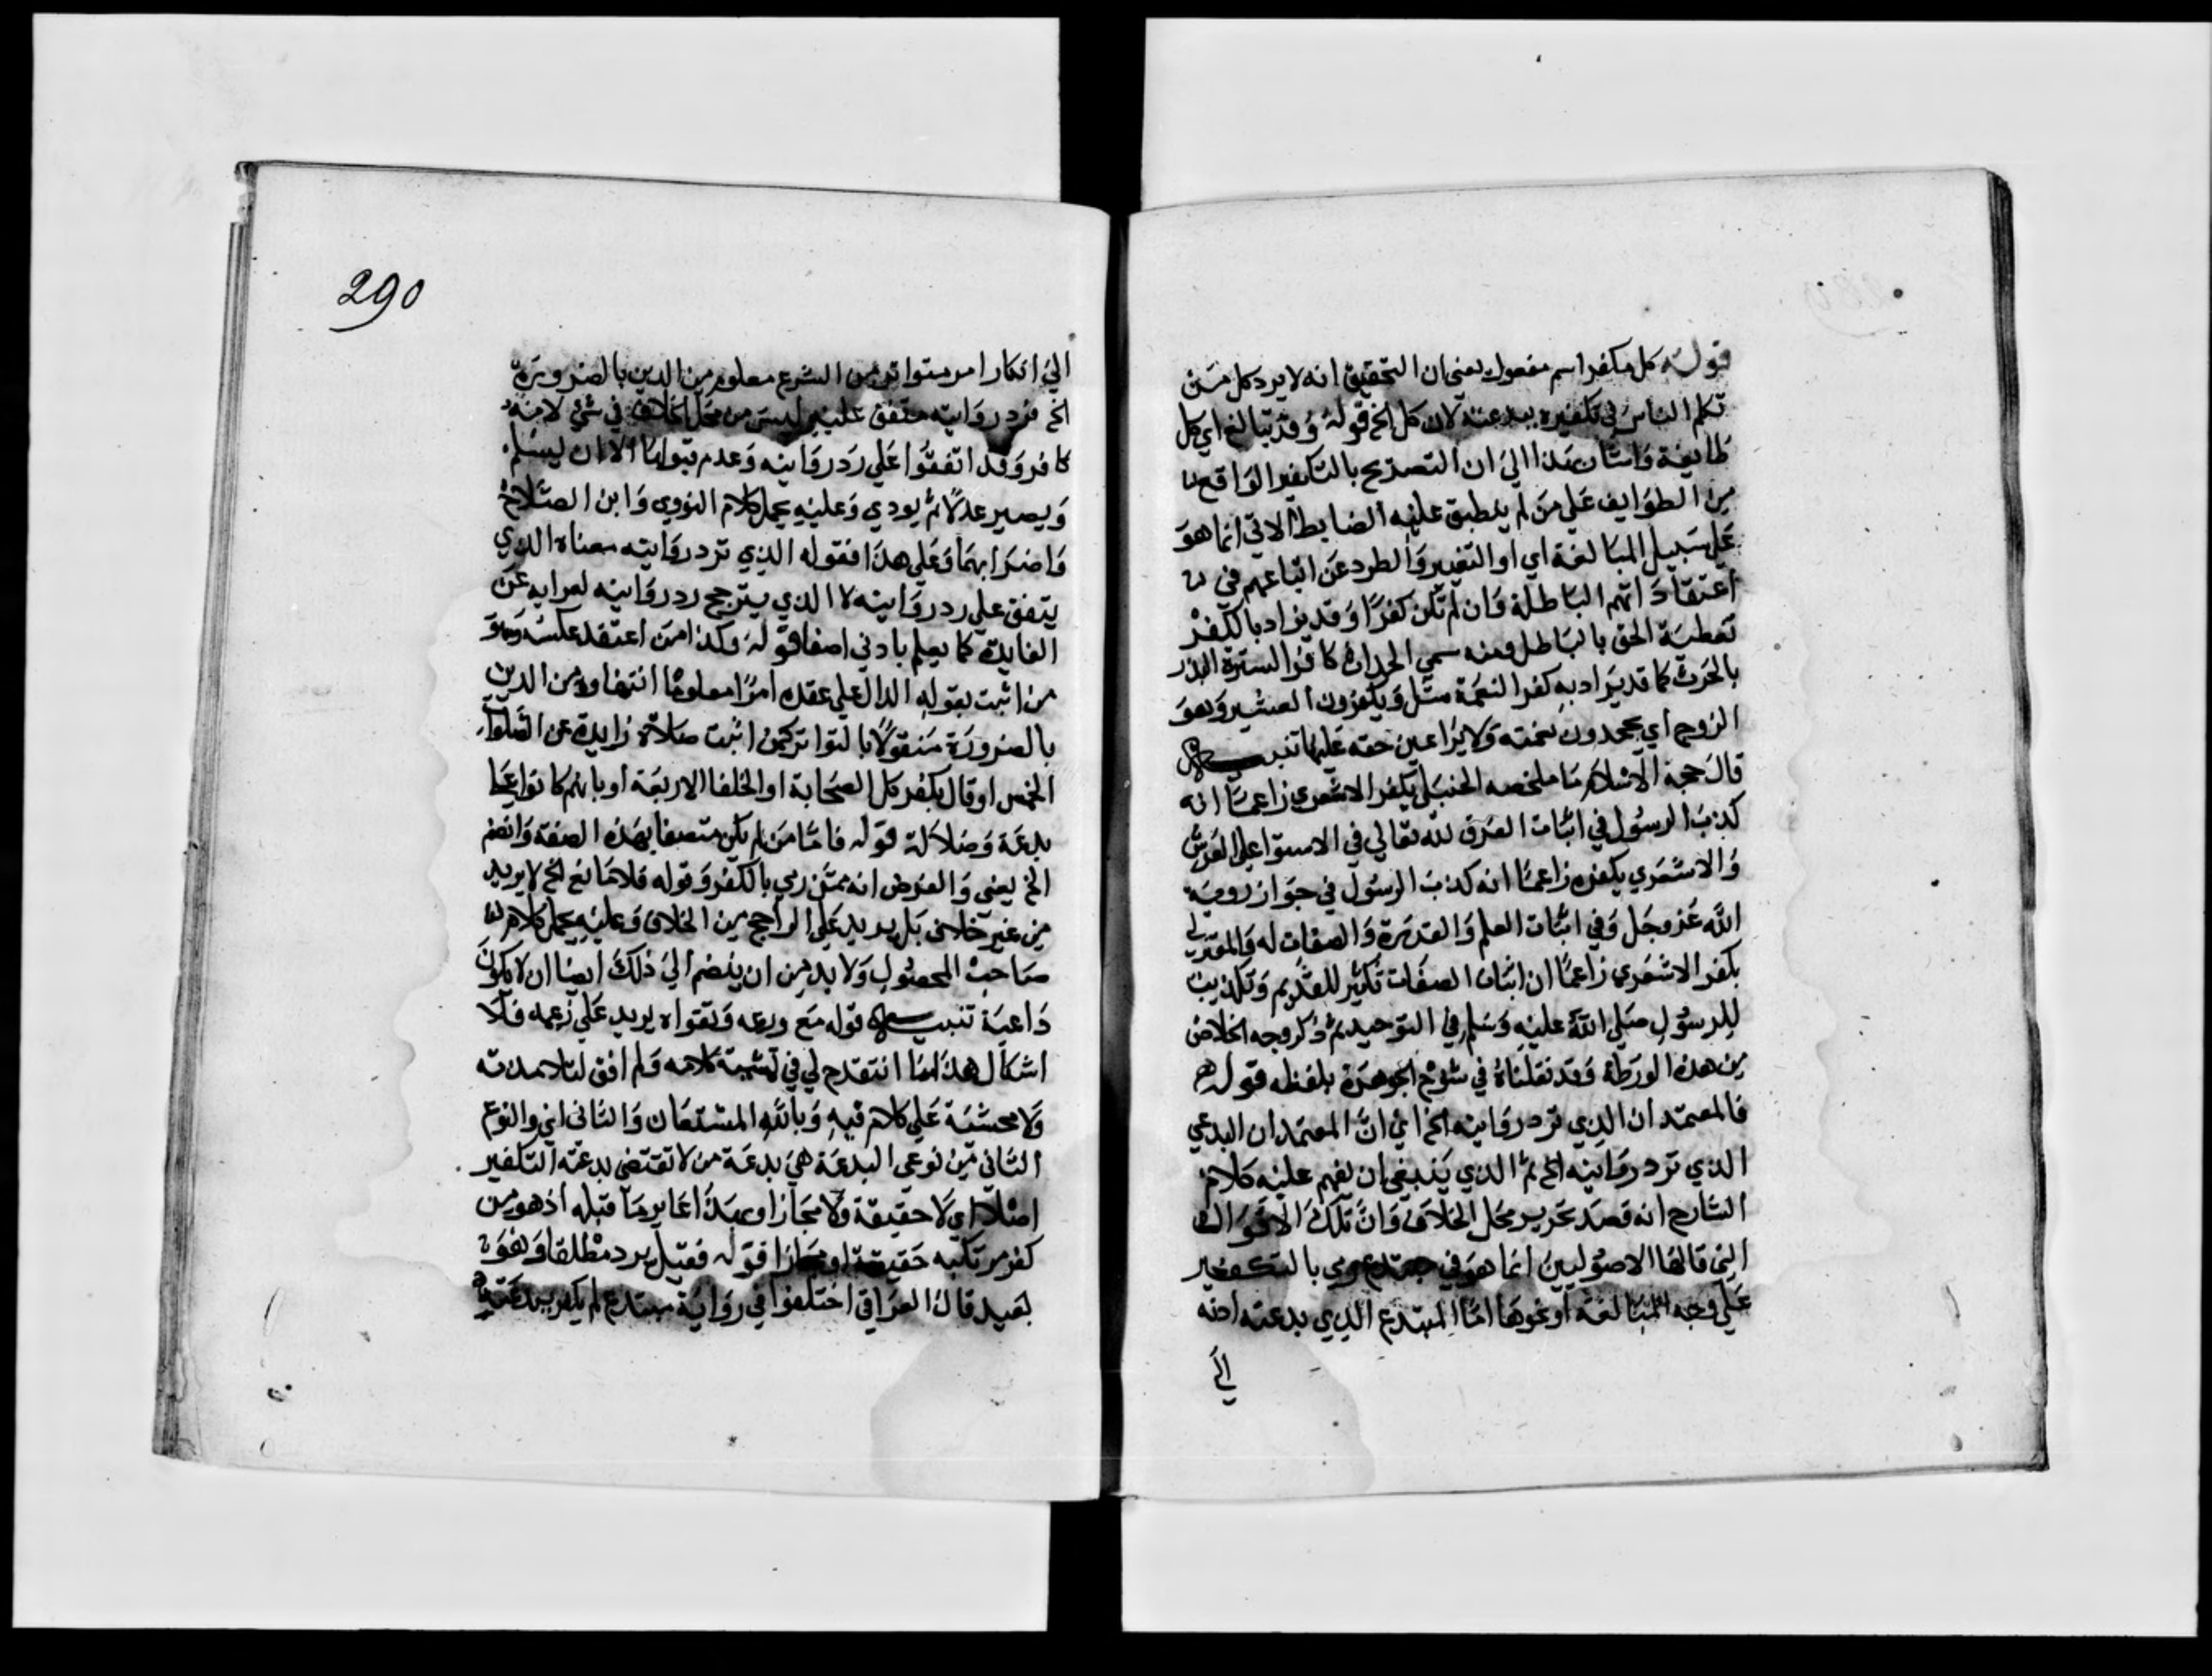 قوله كل مكفر اسم مفعول يعني ان التحقيق انه لا يرد كل من
تكلم الناس في تكفيره ببدعته لان كل الخ قوله وقد تبالغ اي كل
طايفة واشار بهذا الي ان التصريح بالتكفير الواقع
من الطوايف علي من لم ينطبق عليه الضابط الاتي انما هو
علي سبيل المبالغة اي او التنفير والطرد عن اتباعهم في
اعتقاداتهم الباطلة وان لم تكن كفرا وقد يراد بالكفر
تغطية الحق بالباطل ومنه سمي الحراث كافرا لستره البذر
بالحرث كما قد يراد به كفر النعمة مثل ويكفرون العشير وهو
الزوج اي يجحدون نعمته ولا يراعين حقه عليها تنبيه
قال حجة الاسلام ما ملخصه الحنبلي يكفر الاشعري زاعما انه
كذب الرسول في اثبات الفوق لله تعالي في الاستوا علي العرش
والاشعري يكفره زاعما انه كذب الرسول في جواز روية
الله عز وجل وفي اثبات العلم والقدرة والصفات له والمعتزلي
يكفر الاشعري زاعما ان اثبات الصفات تكثير للقديم وتكذيب
للرسول صلي الله عليه وسلم في التوحيد ثم ذكر وجه الخلاص
من هذه الورطة وقد نقلناه في شرح الجوهرة بلفظه قوله
فالمعتمد ان الذي ترد روايته الخ اي ان المعتمد ان البدعي
الذي ترد روايته الخ ثم الذي ينبغي ان يفهم عليه كلام
الشارح انه قصد تحرير محل الخلاف وان تلك الاقوال
التي قالها الاصوليين انما هو في مبتدع رمي بالتكفير
علي وجه المبالغة او نحوها اما المبتدع الذي بدعته ادته
الي
290
الي انكار امر متواتر من الشرع معلوم من الدين بالضرورة
الخ فرد روايته متفق عليه ليس من محل الخلاف في شئ لانه
كافر وقد اتفقوا علي رد روايته وعدم قبولها الا ان يسلم
ويصير عدلا ثم يودي وعليه يحمل كلام النووي وابن الصلاح
واضرابهما وعلي هذا فقوله الذي ترد روايته معناه الذي
يتفق علي رد روايته لا الذي يترجح رد روايته لعرايه عن
الفايدة كما يعلم بادني اصغا قوله وكذا من اعتقد عكسه وهو
من اثبت بقوله الدال علي عقده امرا معلوما انتفاوه من الدين
بالضرورة منقولا بالتواتر كمن اثبت صلاة زايدة عن الصلوات
الخمس او قال بكفر كل الصحابة او الخلفا الاربعة او بانهم كانوا علي
بدعة وضلالة قوله فاما من لم يكن متصفا بهذه الصفة وانضم
الخ يعني والفرض انه ممن رمي بالكفر وقوله فلا مانع الخ لا يريد
من غير خلاف بل يريد علي الراجح من الخلاف وعليه يحمل كلام
صاحب المحصول ولا بد من ان ينضم الي ذلك ايضا ان لا يكون
داعية تنبيه قوله مع ورعه وتقواه يريد علي زعمه فلا
اشكال هذا ما انتقدح لي في تمشية كلامه ولم اقف لتلامذته
ولا محشيه علي كلام فيه وبالله المستعان والثاني اي والنوع
الثاني من نوعي البدعة هي بدعة من لا تقتضي بدعته التكفير
اصلا اي لا حقيقة ولا مجازا وبهذا غاير ما قبله اذ هو من
كفر مرتكبه حقيقة او مجازا قوله فقيل يرد مطلقا وهو
بعيد قال العراقي اختلفوا في رواية مبتدع لم يكفر ببدعته